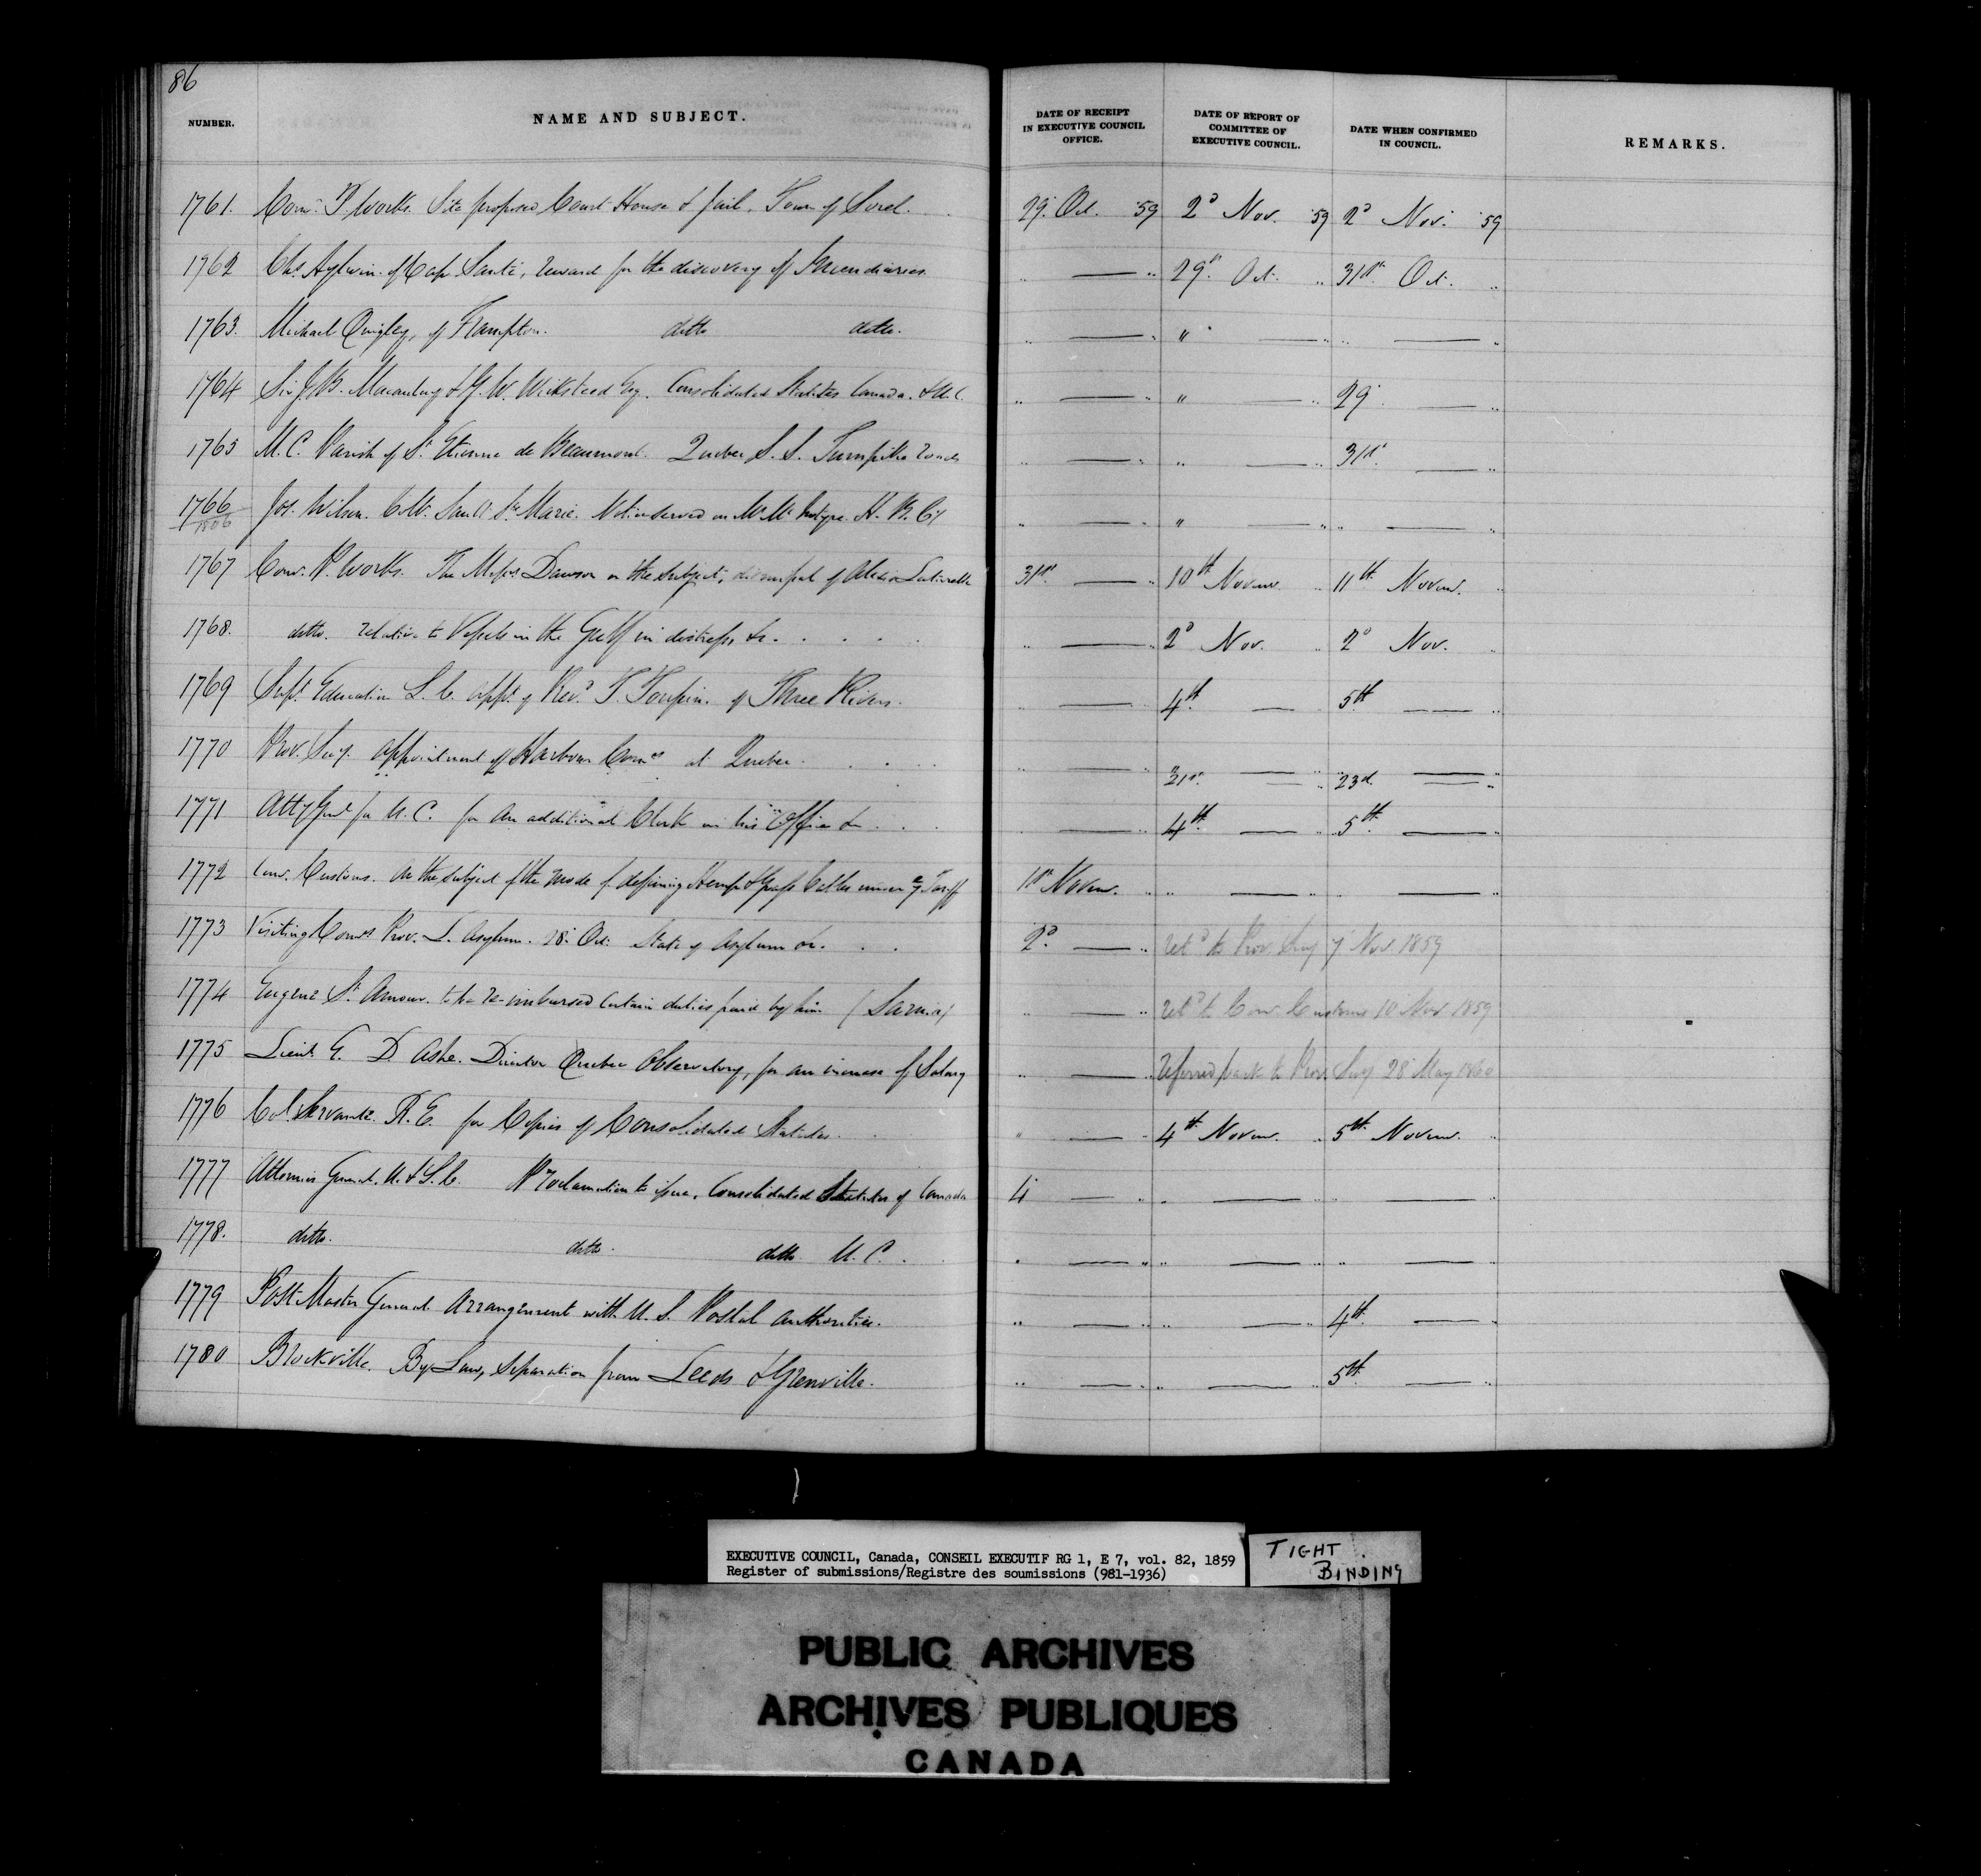 86
NUMBER. NAME AND SUBJECT. DATE OF RECEIPT IN EXECUTIVE COUNCIL OFFICE. DATE OF REPORT OF COMMITTEE OF EXECUTIVE COUNCIL. DATE WHEN CONFIRMED IN COUNCIL. REMARKS.
1761. Comr. P. Works. Site proposed Court House & Jail, Town of Sorel. 29. Oct. '59 2d Nov. '59 2d Nov. '59
1762 Chs. Aylwin of Cap Santé, reward for the discovery of Incendiaries. " — " 29th Oct. " 31st Oct. "
1763. Michael Quigley, of Frampton. ditto ditto. " — " " — " " — "
1764 Sir J. B. Macaulay & G. W. Wicksteed Esq. Consolidated Statutes Canada. & U. C. " — " " — " 29 — "
1765 M. C. Parish of St. Etienne de Beaumont. Quebec S. S. Turnpike roads " — " " — " 31st — "
1766 Jos. Wilson. Sault Ste Marie. Notice served on Mr. McIntyre. H. B. Cy " — " " — " " — "
1506
1767 Comr. P. Works. The Messrs. Dawson on the subject, dismissal of 31st — " 10th Novem. " 11th Novem. "
1768. ditto. relative to Vessels in the Gulf in distress &c. . . . . " — " 2d Nov. " 2d Nov. "
1769 Supt. Education L. C. appt. of Revd. T. Toupin. of Three Rivers. " — " 4th — 5th — "
1770 Prov. Secy. appointment of Harbour Comrs at Quebec. . . . " — " 21st — " 23d. — "
1771 Atty Genl for U. C. for an additional Clerk in his Office &c . . . — " 4th. — " 5th — "
1772 Comr. Customs. On the subject of the mode of defining Hemp & Grass Cables under ye Tariff 1st Novem. " — " " — "
1773 Visiting Comrs Prov. L. Asylum. 28. Oct. State of Asylum &c. . . 2d — " retd to Prov. Secy 7 Nov. 1859
1774 Eugene St. Amour. to be re-imbursed certain duties paid by him (Sarnia) " — " retd to Comr. Customs 10 Nov 1859
1775 Lieut. E. D. Ashe. Director Quebec Observatory, for an increase of Salary " — " referred back to Prov. Secy 28 May 1860
1776 Col. Servante. R. E. for Copies of Consolidated Statutes. " — " 4th Novem. " 5th Novem. "
1777 Attornies General. U. & L. C. Proclamation to issue, Consolidated Statutes of Canada 4 — " " — " " — "
1778. ditto. ditto. ditto U. C. . " — " " — " " — "
1779 Post Master General Arrangement with U. S. Postal authorities. " — " " — " 4th — "
1780 Brockville. By Law, separation from Leeds & Grenville. " — " " — " 5th — "
EXECUTIVE COUNCIL, Canada, CONSEIL EXECUTIF RG 1, E 7, vol. 82, 1859
Register of submissions/Registre des soumissions (981-1936)
TIGHT
BINDING
PUBLIC ARCHIVES
ARCHIVES PUBLIQUES
CANADA